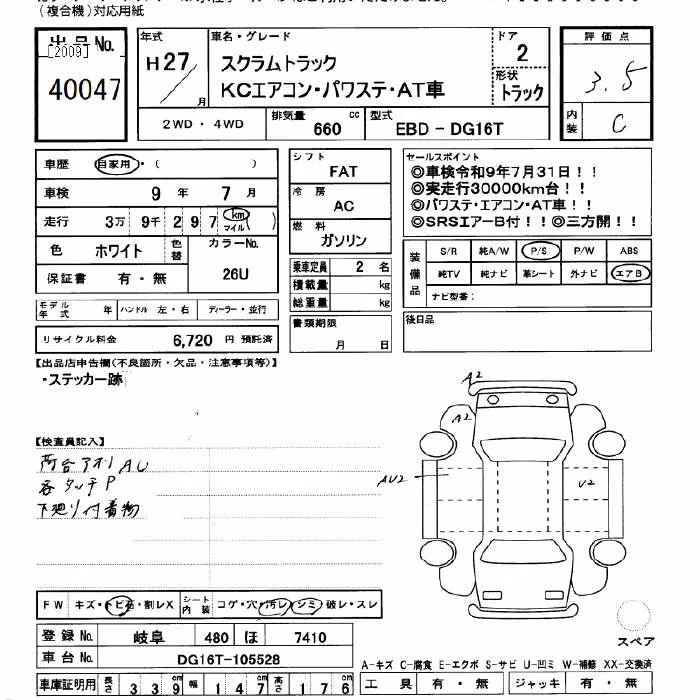 (複合機)対応用紙
出品No.
[2009]
40047
年式
H27/月
車名・グレード
スクラムトラック
KCエアコン・パワステ・AT車
ドア
2
形状
トラック
評価点
3.5
内装
C
2WD・4WD
排気量 660 cc
型式 EBD-DG16T
車歴 自家用・( )
車検 9年 7月
走行 3万 9千 2 9 7 km マイル ( )
色 ホワイト 色替
カラーNo.
26U
保証書 有・無
モデル年式 年 ハンドル 左・右 ディーラー・並行
リサイクル料金 6,720 円 預託済
シフト
FAT
冷房
AC
燃料
ガソリン
乗車定員 2 名
積載量 kg
総重量 kg
書類期限
月 日
セールスポイント
◎車検令和9年7月31日!!
◎実走行30000km台!!
◎パワステ・エアコン・AT車!!
◎SRSエアーB付!!◎三方開!!
装備品
S/R 純A/W P/S P/W ABS
純TV 純ナビ 革シート 外ナビ エアB
ナビ型番:
後日品
【出品店申告欄(不良箇所・欠品・注意事項等)】
・ステッカー跡
【検査員記入】
荷台アオリ AU
各タッチP
下廻り付着物
A2
A2
AU2
U2
スペア
FW キズ・トビ石・割レX
シート内装 コゲ・穴・汚レ・シミ・破レ・スレ
登録No. 岐阜 480 ほ 7410
車台No. DG16T-105528
車庫証明用 長さ 3 3 9 cm 幅 1 4 7 cm 高さ 1 7 6 cm
A-キズ C-腐食 E-エクボ S-サビ U-凹ミ W-補修 XX-交換済
工具 有・無 ジャッキ 有・無